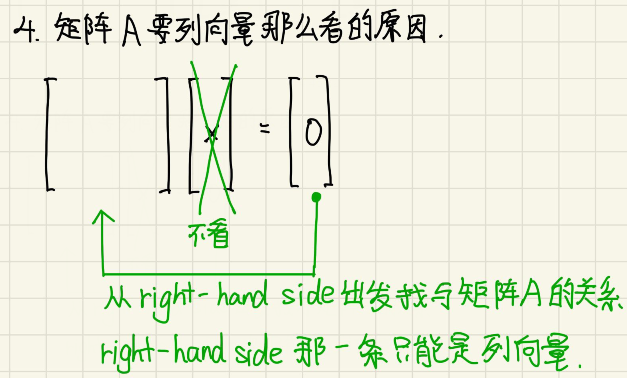 4. 矩阵 A 要列向量那么看的原因.
[ ] [x] = [0]
不看
从 right-hand side 出发找与矩阵A的关系
right-hand side 那一条只能是列向量.